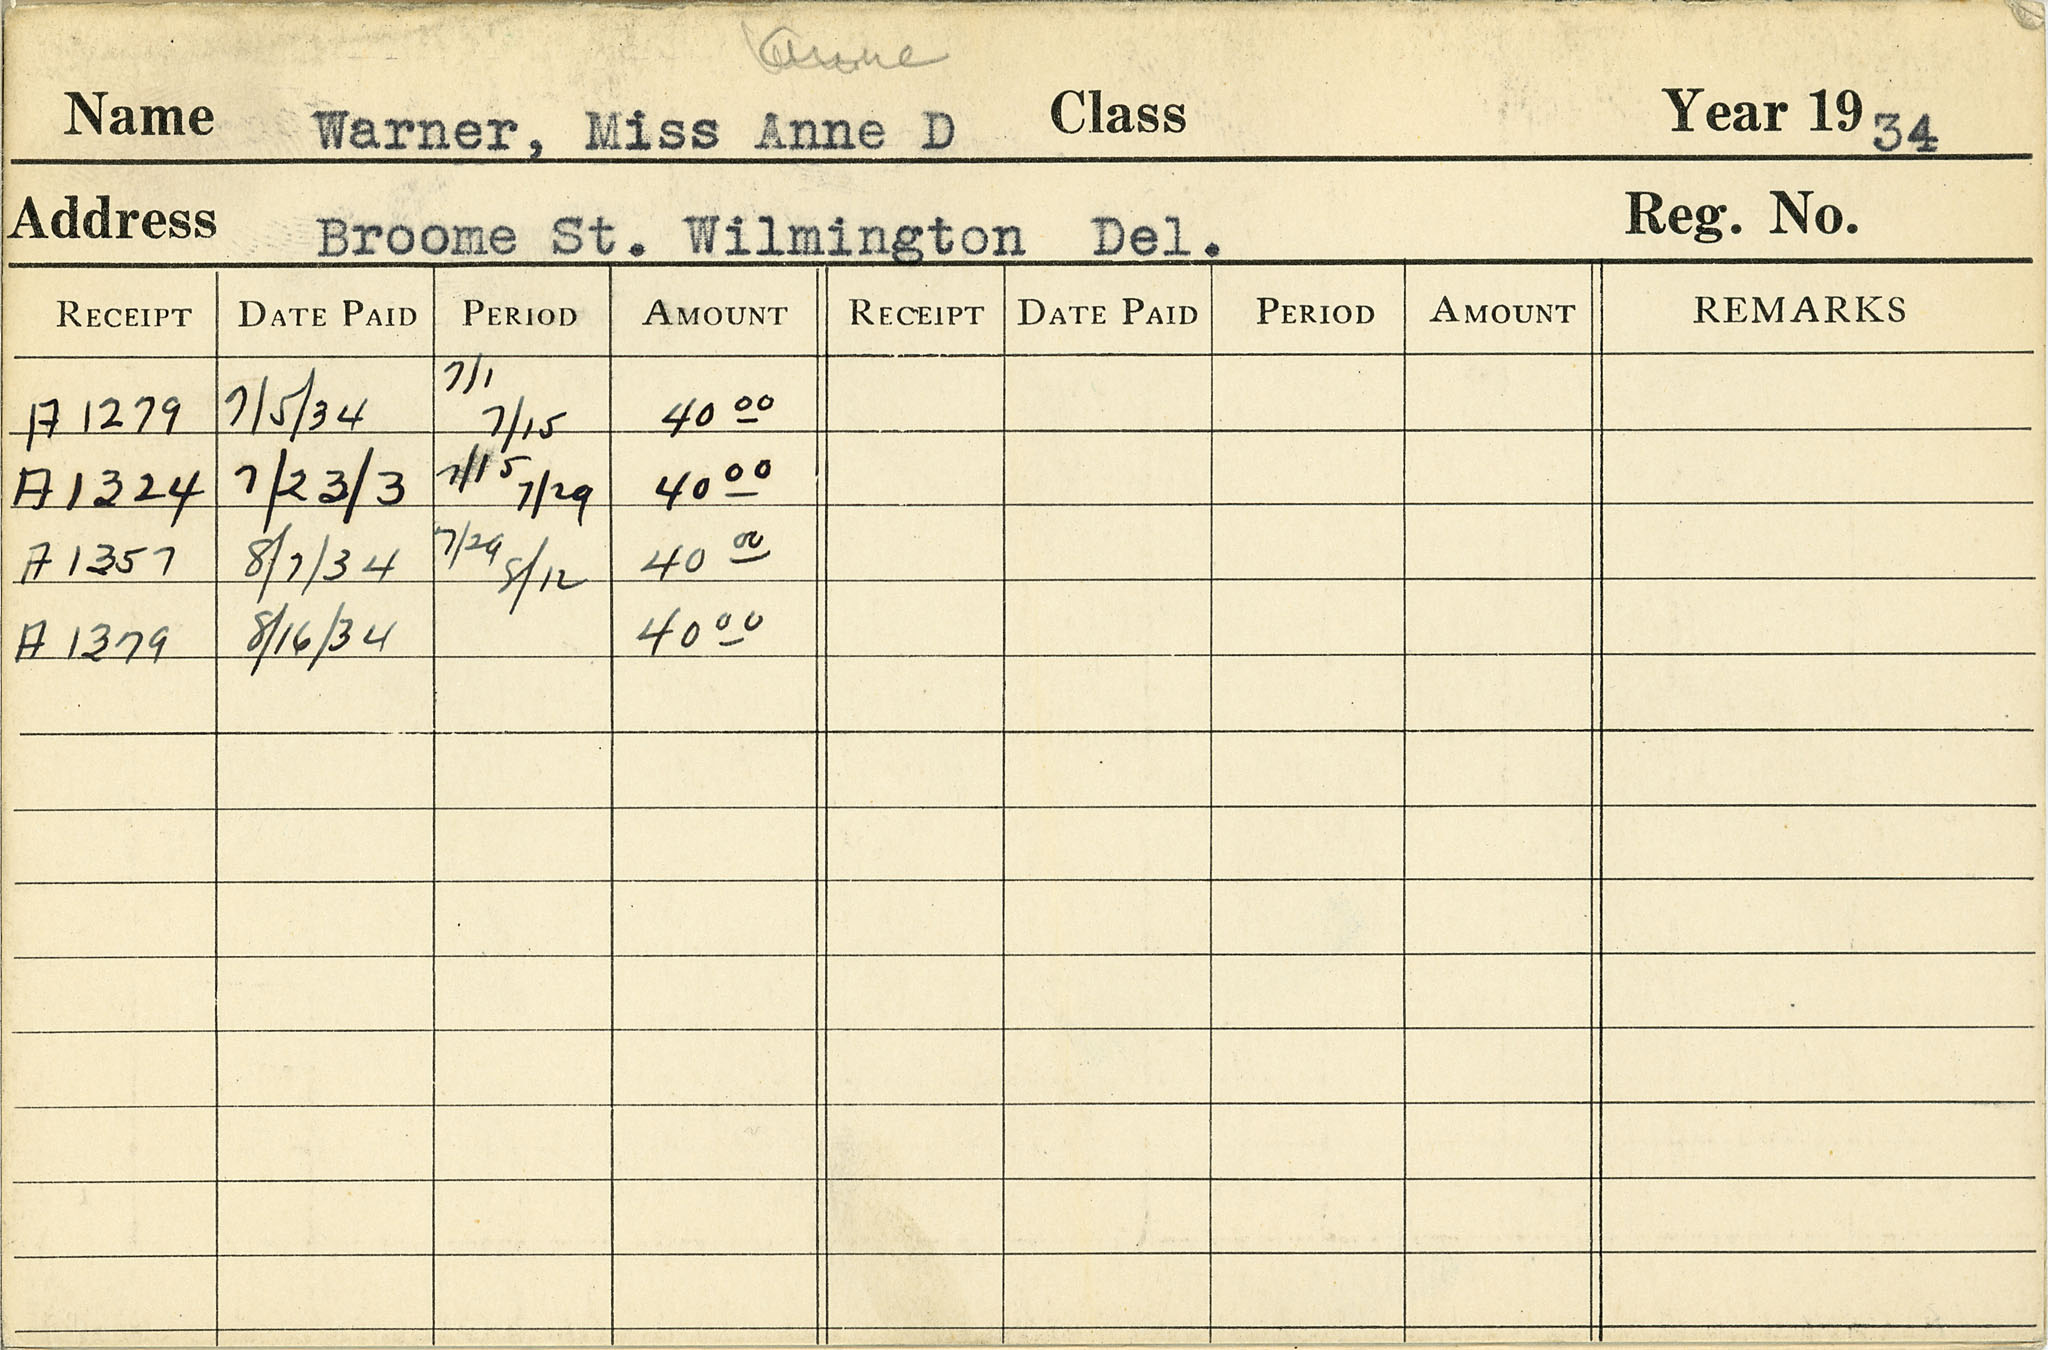 Anne
Name Warner, Miss Anne D Class Year 1934
Address Broome St. Wilmington Del. Reg. No.
RECEIPT DATE PAID PERIOD AMOUNT RECEIPT DATE PAID PERIOD AMOUNT REMARKS
A 1279 7/5/34 7/1 7/15 40 00
A 1324 7/23/3 7/15 7/29 40 00
A 1357 8/7/34 7/29 8/12 40 00
A 1379 8/16/34 40 00